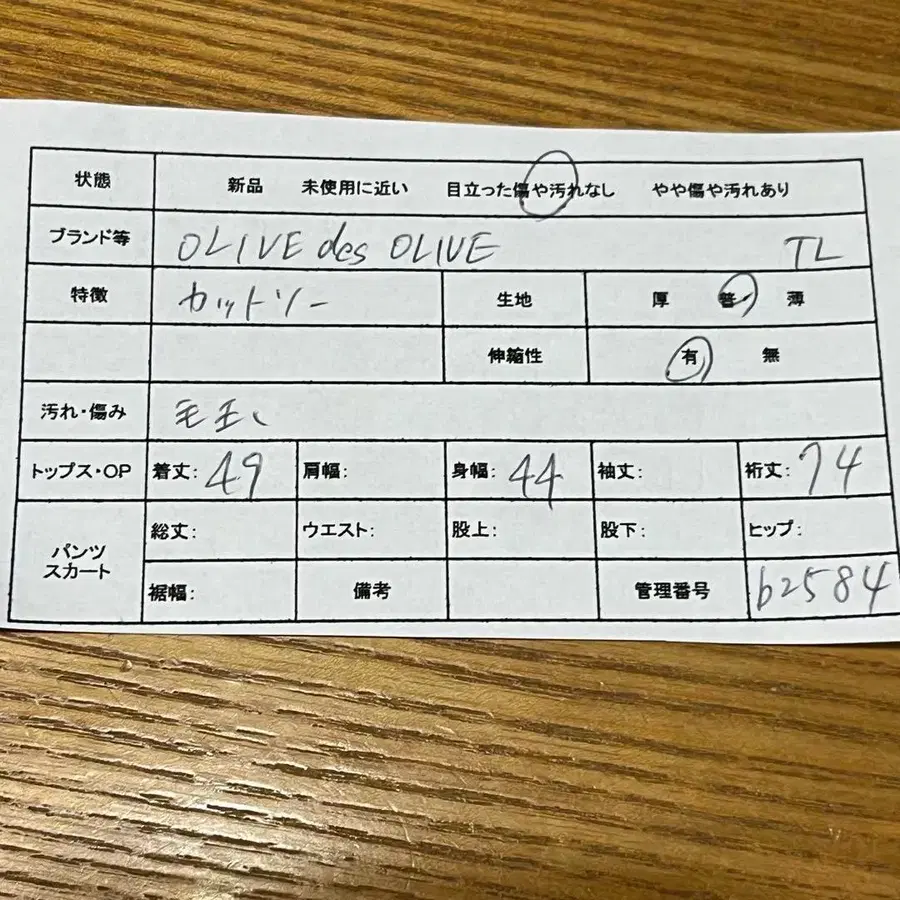 状態 新品 未使用に近い 目立った傷や汚れなし やや傷や汚れあり
ブランド等 OLIVE des OLIVE TL
特徴 カットソー 生地 厚 普 薄
伸縮性 有 無
汚れ・傷み 毛玉、
トップス・OP 着丈: 49 肩幅: 身幅: 44 袖丈: 裄丈: 74
パンツ スカート 総丈: ウエスト: 股上: 股下: ヒップ:
裾幅: 備考 管理番号 b2584